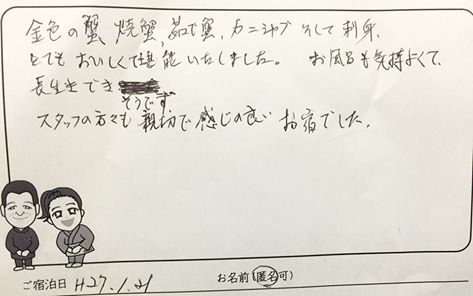 金色の蟹 焼蟹、茹で蟹、カニシャブ そして 刺身、
とても おいしくて堪能いたしました。 お風呂も気持よくて、
長生きでき
そうです
スタッフの方々も 親切で 感じの良い お宿でした。
ご宿泊日 H27.1.21 お名前(匿名可)